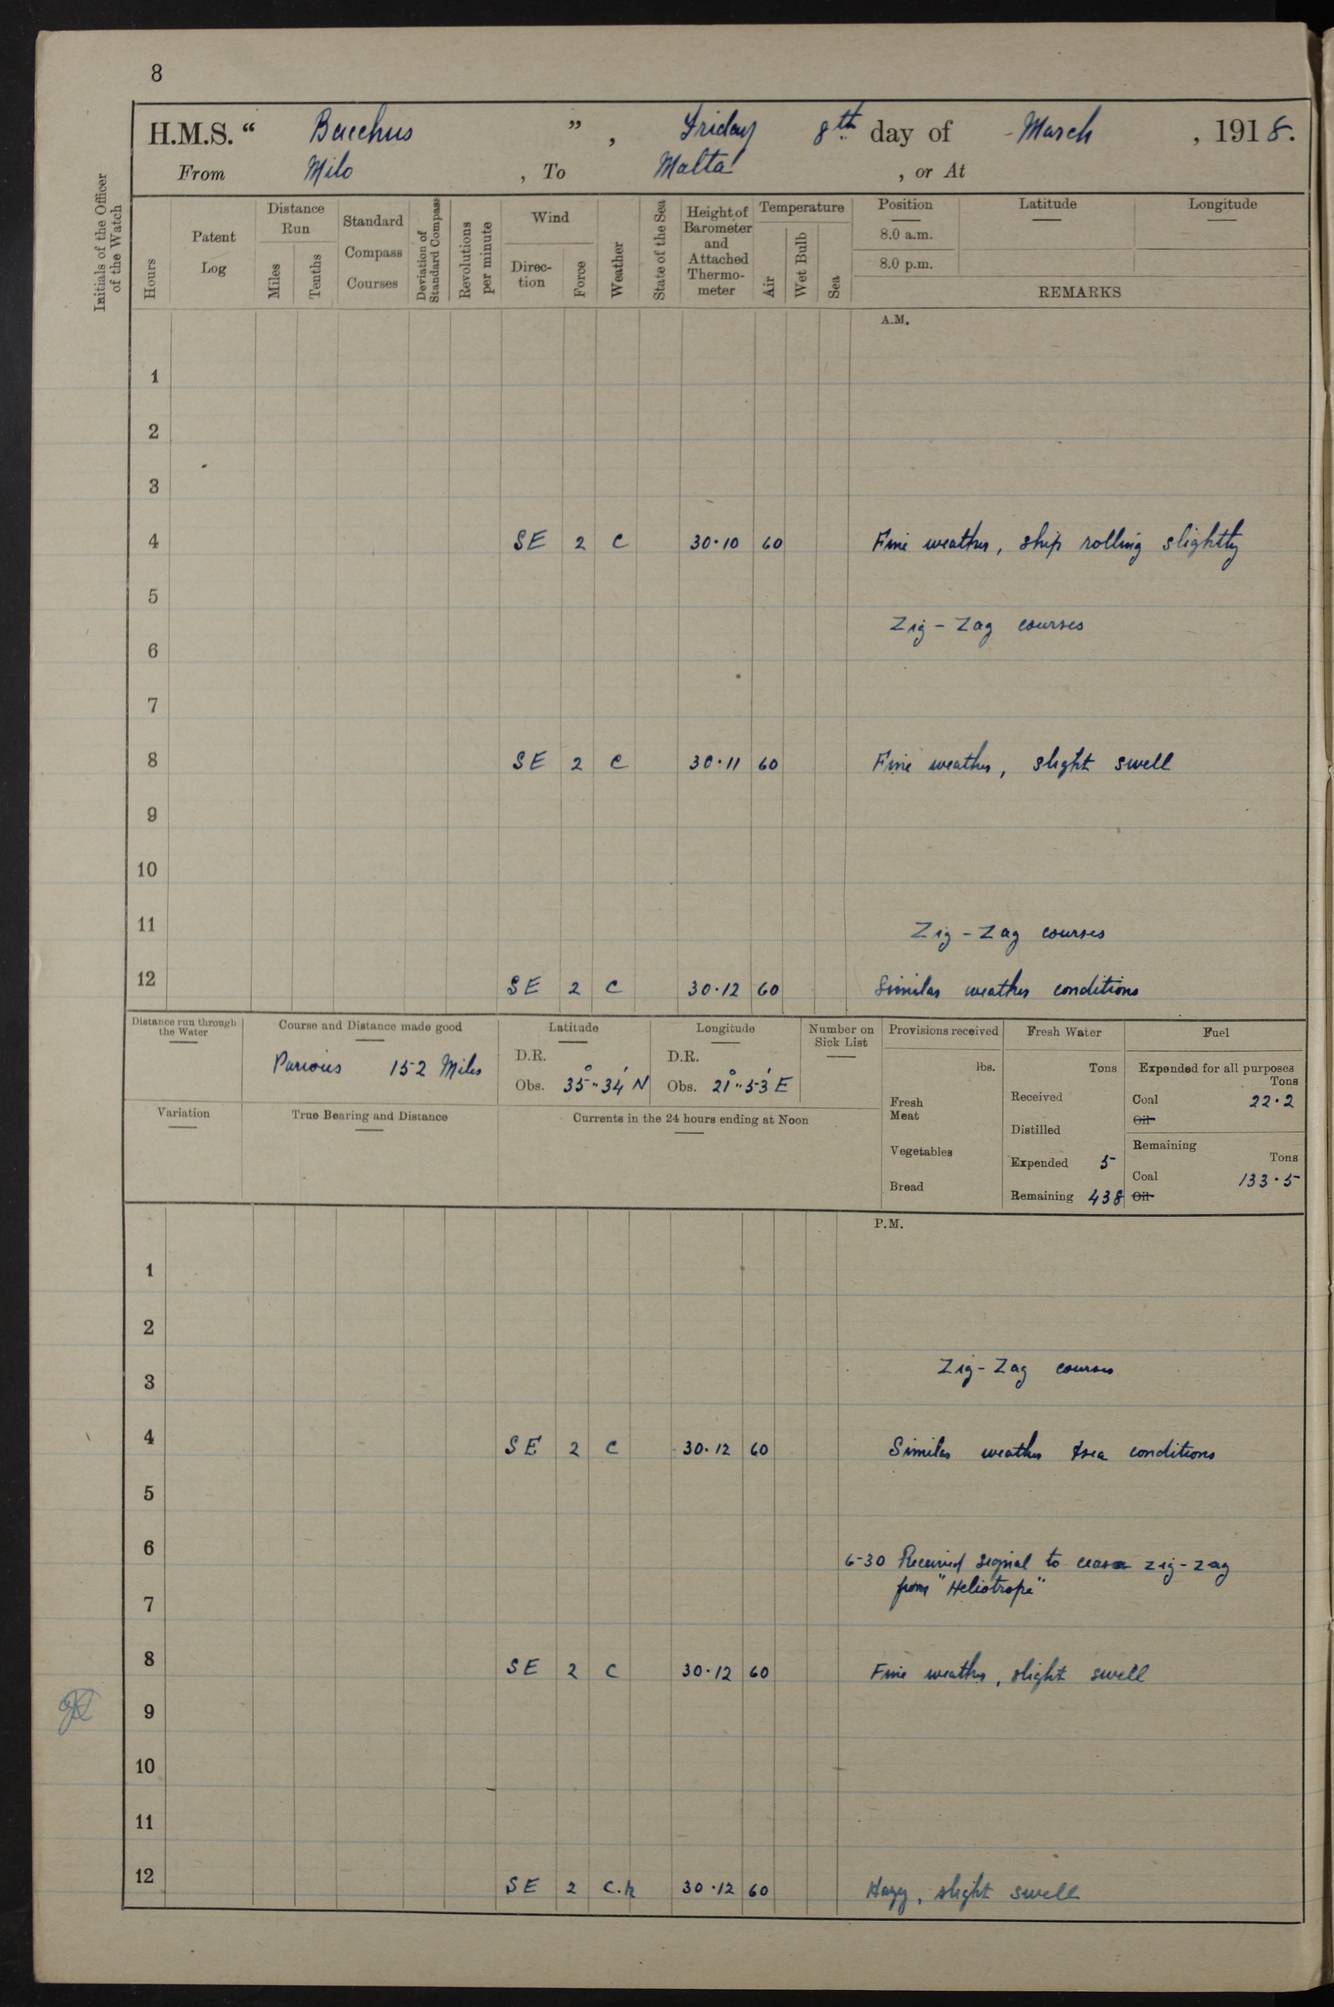 8
H.M.S. “ Bacchus ” , Friday 8th day of March , 1918.
From Milo , To Malta , or At
Initials of the Officer of the Watch
Hours
Patent Log
Distance Run
Miles
Tenths
Standard Compass Courses
Deviation of Standard Compass
Revolutions per minute
Wind
Direc-tion
Force
Weather
State of the Sea
Height of Barometer and Attached Thermo-meter
Temperature
Air
Wet Bulb
Sea
Position
8.0 a.m.
8.0 p.m.
Latitude
Longitude
REMARKS
A.M.
1
2
3
4 SE 2 C 30·10 60 Fine weather, ship rolling slightly
5
Zig-Zag courses
6
7
8 SE 2 C 30·11 60 Fine weather, slight swell
9
10
11
Zig-Zag courses
12 SE 2 C 30·12 60 Similar weather conditions
Distance run through the Water
Course and Distance made good
Various 152 Miles
Latitude
D.R.
Obs. 35°·34′ N
Longitude
D.R.
Obs. 21°·53′ E
Number on Sick List
Provisions received
lbs.
Fresh Meat
Vegetables
Bread
Fresh Water
Tons
Received
Distilled
Expended 5
Remaining 438
Fuel
Expended for all purposes
Tons
Coal 22·2
Oil
Remaining
Tons
Coal 133·5
Oil
Variation
True Bearing and Distance
Currents in the 24 hours ending at Noon
P.M.
1
2
Zig-Zag courses
3
4 SE 2 C 30·12 60 Similar weather & sea conditions
5
6
6-30 Received signal to cease zig-zag
from "Heliotrope"
7
8 SE 2 C 30·12 60 Fine weather, slight swell
9
10
11
12 SE 2 C.h 30·12 60 Hazy, slight swell